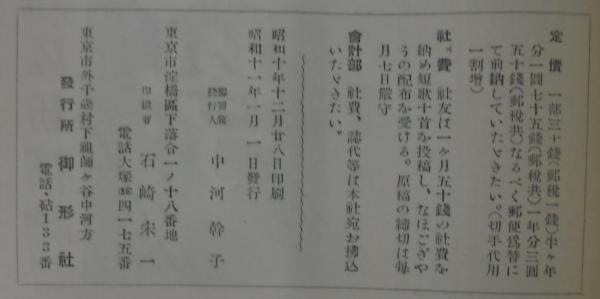 定價 一部三十錢(郵稅一錢)半ヶ年
分一圓七十五錢(郵稅共)一年分三圓
五十錢(郵稅共)なるべく郵便爲替に
て前納していたゞきたい。(切手代用
一割增)
社費 社友は一ヶ月五十錢の社費を
納め短歌十首を投稿し、なほごぎや
うの配布を受ける。原稿の締切は每
月七日嚴守
會計部 社費、誌代等は本社宛お拂込
いたゞきたい。
昭和十年十二月廿八日印刷
昭和十一年一月一日發行
編輯兼發行人 中河幹子
東京市淀橋區下落合一ノ十八番地
印刷者 石崎朱一
電話大塚四一七五番
東京市外千歲村下祖師ヶ谷中河方
發行所 御形社
電話・砧133番